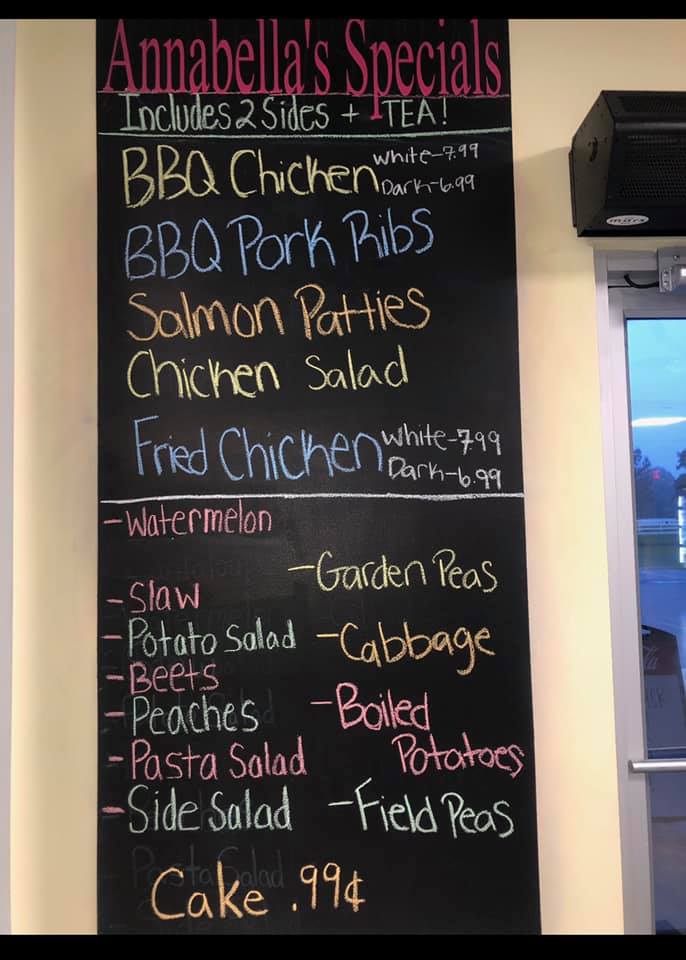 Annabella's Specials
Includes 2 Sides + TEA!
BBQ Chicken White-7.99
Dark-6.99
BBQ Pork Ribs
Salmon Patties
Chicken Salad
Fried Chicken White-7.99
Dark-6.99
-Watermelon
-Garden Peas
-Slaw
-Potato Salad -Cabbage
-Beets
-Peaches -Boiled
Potatoes
-Pasta Salad
-Side Salad -Field Peas
Pasta Salad
Cake .99¢
mars